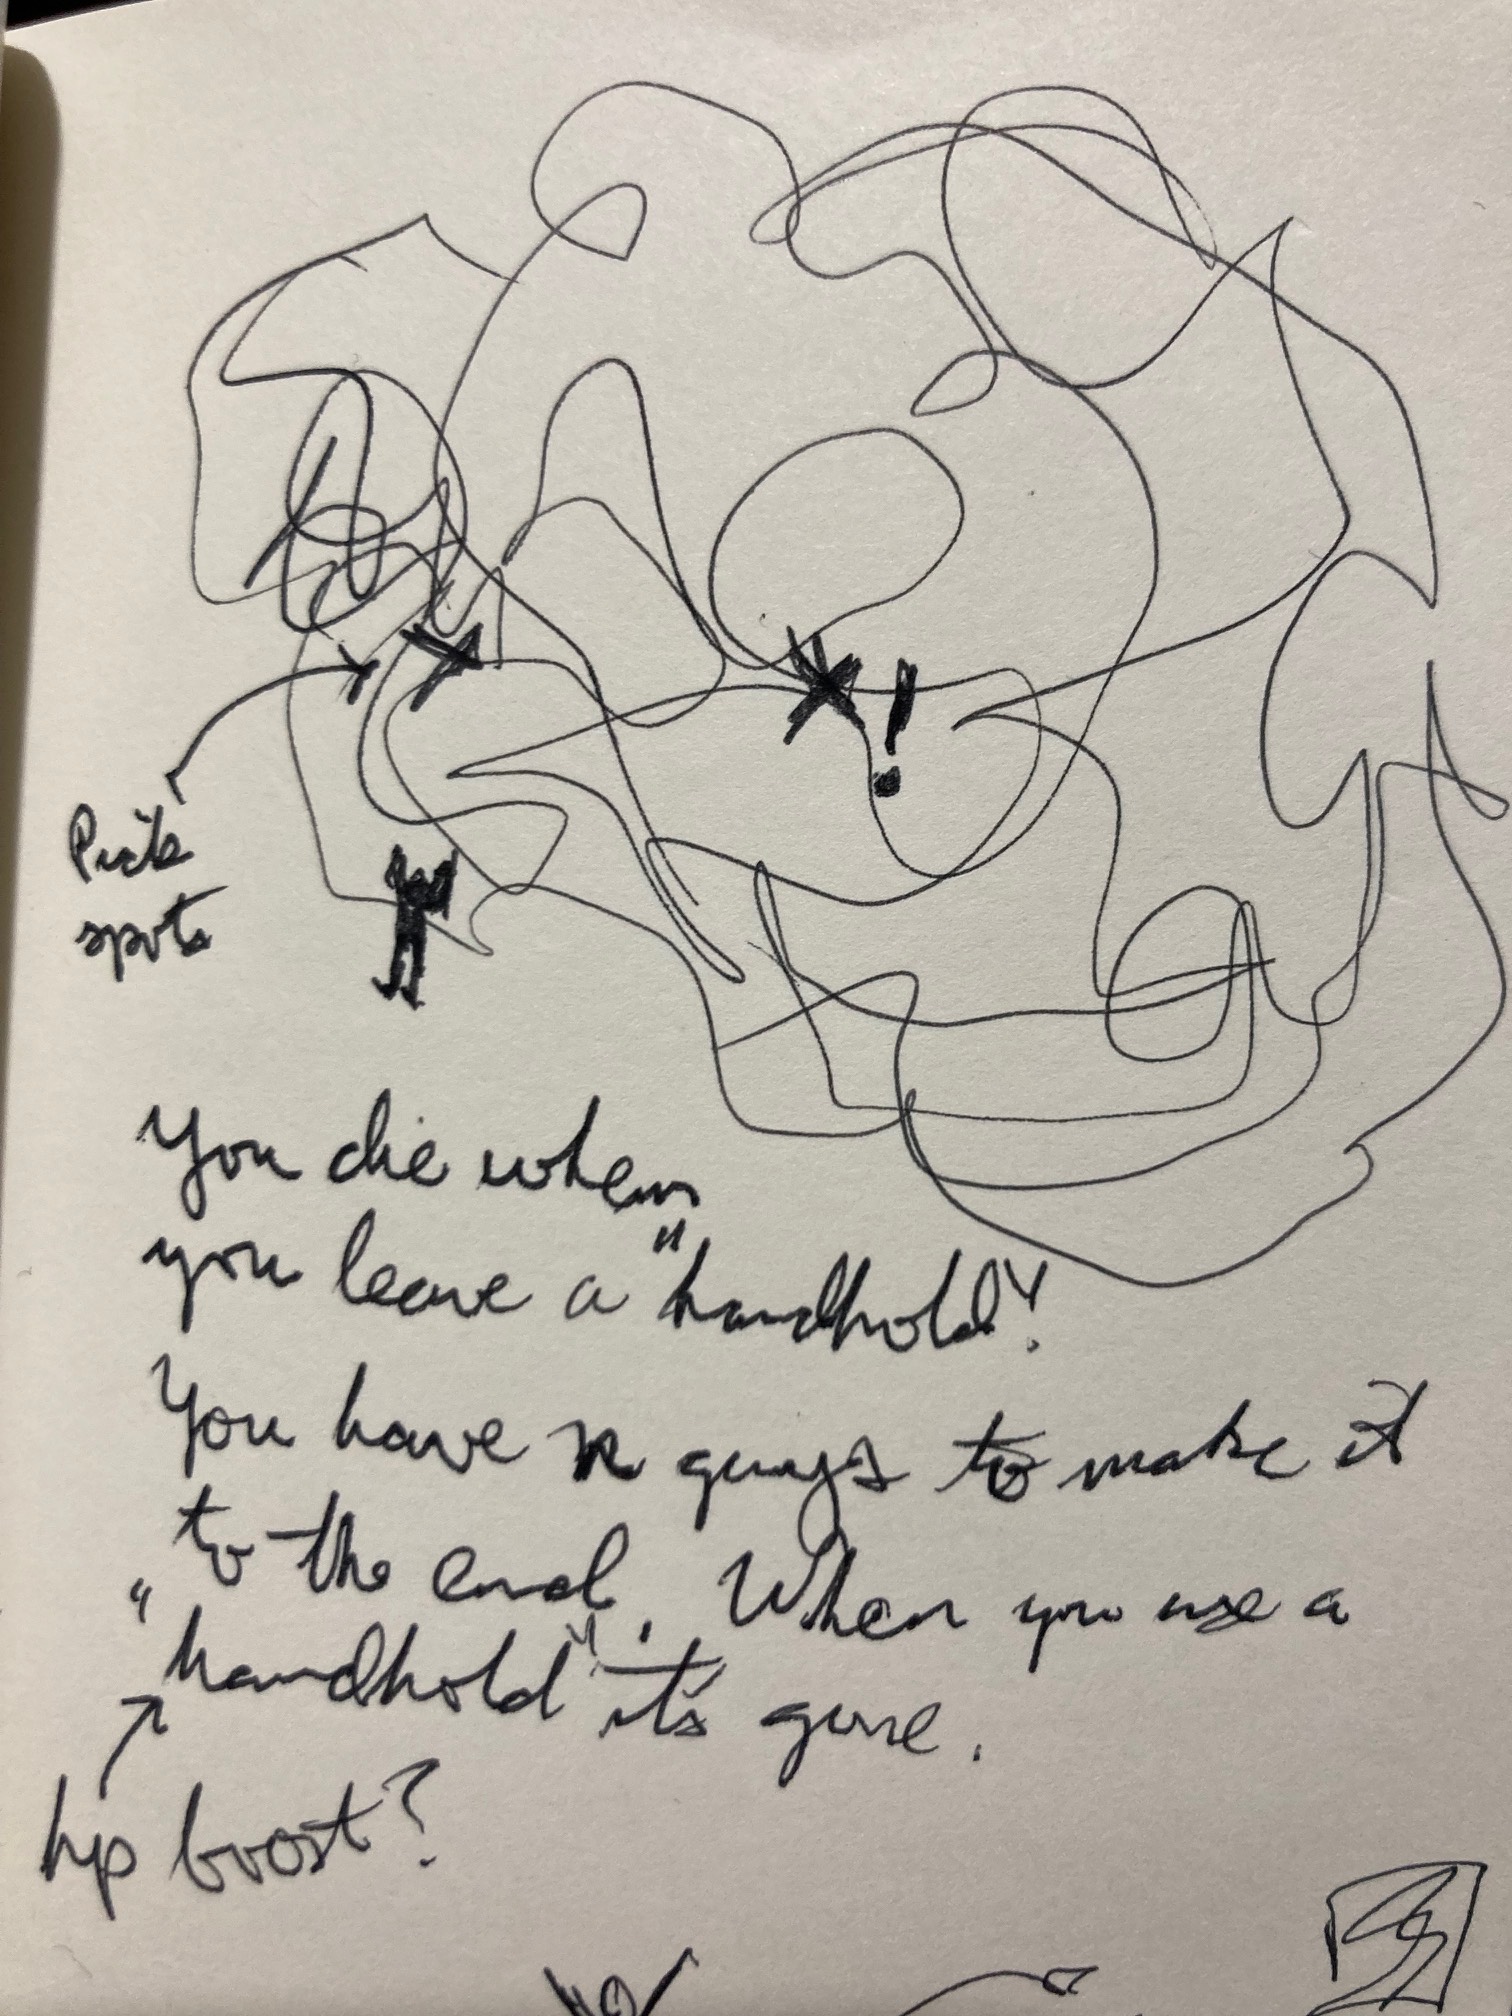 !
Pick
spots
You die when
you leave a "handhold"!
You have n guys to make it
to the end. When you use a
"handhold" it's gone.
hp boost?